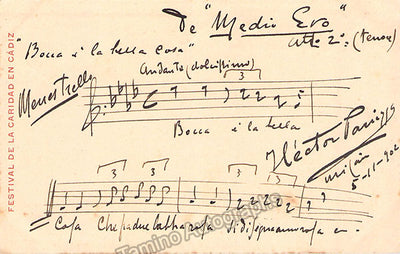 De "Medio Evo"
Atto 2º. (Tenore)
"Bocca è la bella cosa"
Menestrello
Andante (dolcissimo)
3
Bocca è la bella
Héctor Panizza
Milán
5-11-902
3 3 3
Cosa Che padre labbra rosa
FESTIVAL DE LA CARIDAD EN CÁDIZ
Tamino Autographs